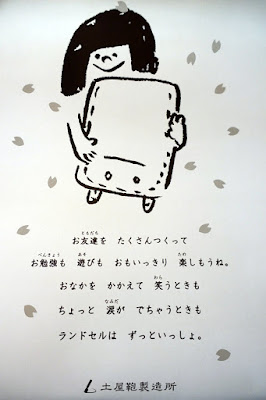 お友達を たくさんつくって
お勉強も 遊びも おもいっきり 楽しもうね。
おなかを かかえて 笑うときも
ちょっと 涙が でちゃうときも
ランドセルは ずっといっしょ。
土屋鞄製造所